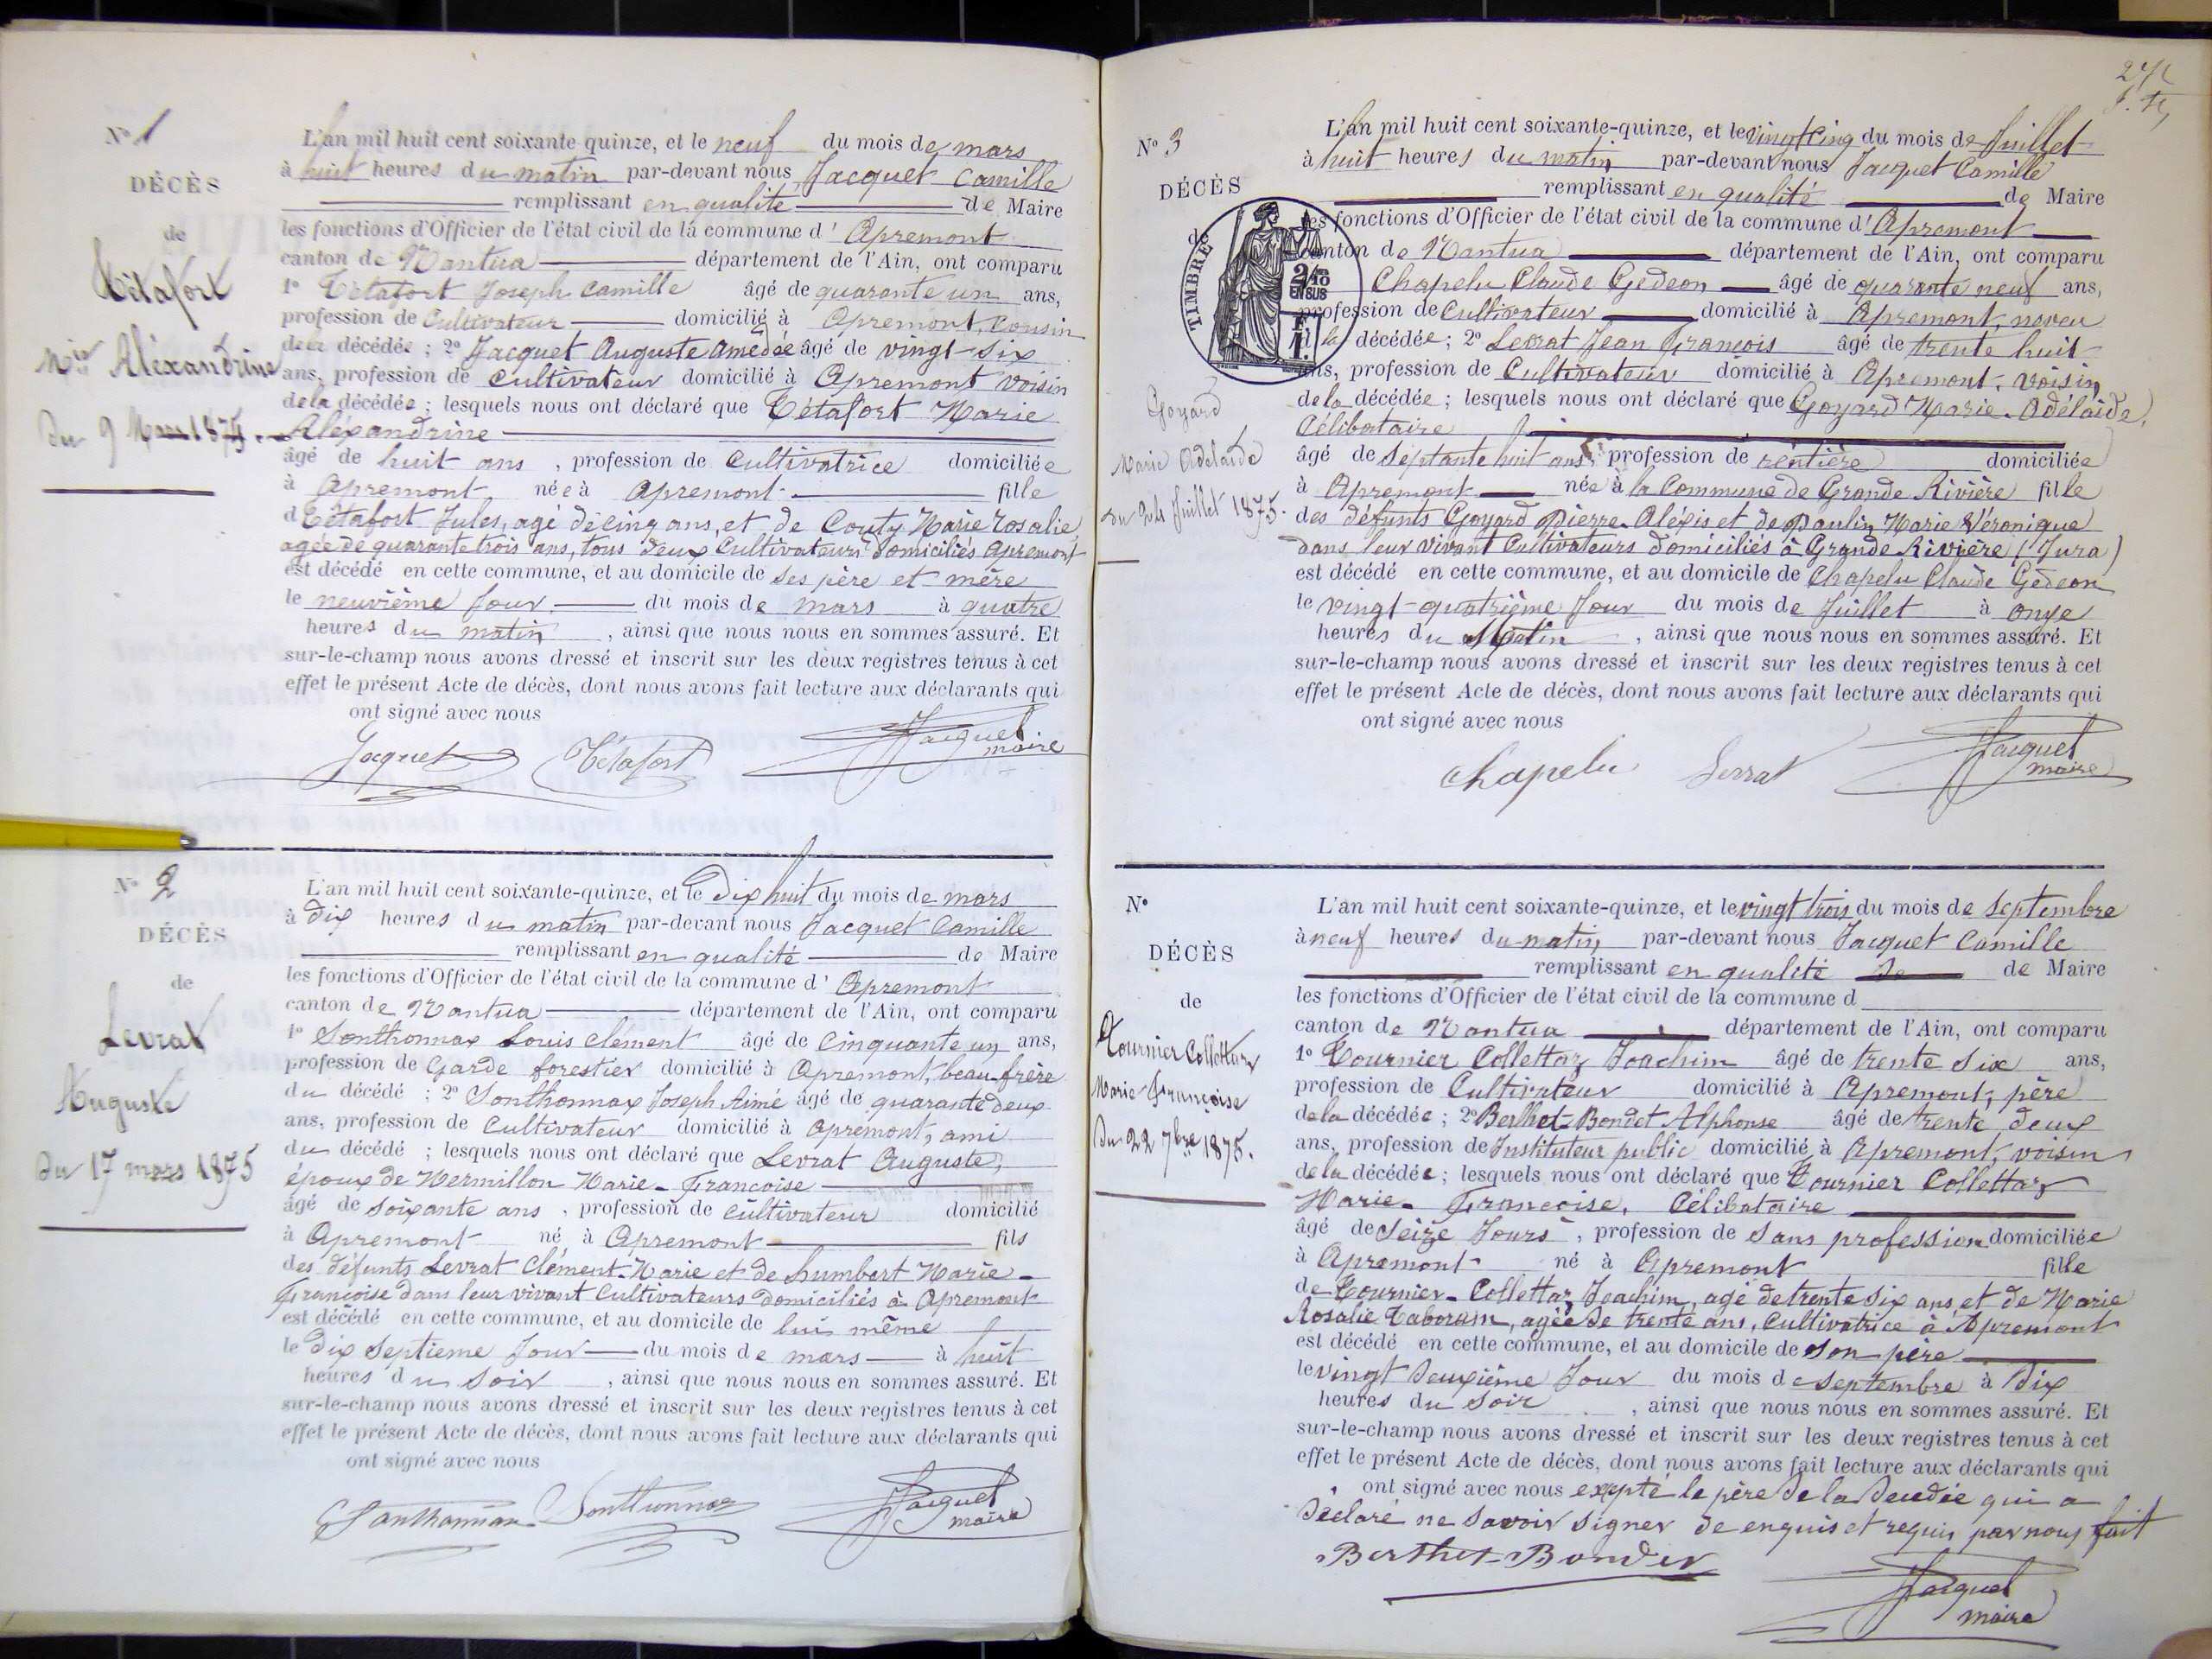 N° 1
DÉCÈS
de
Tétafort
Mie Aléxandrine
du 9 Mars 1875.
L'an mil huit cent soixante-quinze, et le neuf du mois de mars
à huit heures du matin par-devant nous Jacquet Camille
remplissant en qualité de Maire
les fonctions d'Officier de l'état civil de la commune d' Apremont
canton de Nantua département de l'Ain, ont comparu
1° Tétafort Joseph Camille âgé de quarante un ans,
profession de Cultivateur domicilié à Apremont, Cousin
de la décédée ; 2° Jacquet Auguste Amédée âgé de vingt-six
ans, profession de Cultivateur domicilié à Apremont voisin
de la décédée ; lesquels nous ont déclaré que Tétafort Marie
Aléxandrine
âgé de huit ans , profession de Cultivatrice domiciliée
à Apremont née à Apremont fille
d Tétafort Jules, agé de cinq ans, et de Couty Marie Rosalie
agée de quarante trois ans, tous deux Cultivateurs domiciliés Apremont
est décédé en cette commune, et au domicile de ses père et mère
le neuvième Jour du mois de mars à quatre
heures du matin , ainsi que nous nous en sommes assuré. Et
sur-le-champ nous avons dressé et inscrit sur les deux registres tenus à cet
effet le présent Acte de décès, dont nous avons fait lecture aux déclarants qui
ont signé avec nous
Jacquet Tétafort Jacquet
maire
N° 2
DÉCÈS
de
Levrat
Auguste
du 17 mars 1875
L'an mil huit cent soixante-quinze, et le Dix huit du mois de mars
à dix heures du matin par-devant nous Jacquet Camille
remplissant en qualité de Maire
les fonctions d'Officier de l'état civil de la commune d' Apremont
canton de Nantua département de l'Ain, ont comparu
1° Sonthonnax Louis Clément âgé de Cinquante un ans,
profession de Garde forestier domicilié à Apremont, beau-frère
du décédé ; 2° Sonthonnax Joseph Aimé âgé de quarante deux
ans, profession de Cultivateur domicilié à Apremont, ami
du décédé ; lesquels nous ont déclaré que Levrat Auguste,
époux de Mermillon Marie-Françoise
âgé de soixante ans , profession de Cultivateur domicilié
à Apremont né à Apremont fils
des défunts Levrat Clément-Marie et de humbert Marie-
Françoise dans leur vivant Cultivateurs domiciliés à Apremont
est décédé en cette commune, et au domicile de lui même
le dix septieme Jour du mois de mars à huit
heures du soir , ainsi que nous nous en sommes assuré. Et
sur-le-champ nous avons dressé et inscrit sur les deux registres tenus à cet
effet le présent Acte de décès, dont nous avons fait lecture aux déclarants qui
ont signé avec nous
Sonthonnax Sonthonnax Jacquet
maire
N° 3
DÉCÈS
de
TIMBRE
2/10 EN SUS
Goyard
Marie Adelaïde
du 24 Juillet 1875.
L'an mil huit cent soixante-quinze, et le vingt cinq du mois de Juillet
à huit heures du matin par-devant nous Jacquet Camille
remplissant en qualité de Maire
les fonctions d'Officier de l'état civil de la commune d' Apremont
canton de Nantua département de l'Ain, ont comparu
Chapelu Claude Gedeon âgé de quarante neuf ans,
profession de Cultivateur domicilié à Apremont, neveu
d la décédée ; 2° Levrat Jean François âgé de trente huit
ans, profession de Cultivateur domicilié à Apremont, voisin
de la décédée ; lesquels nous ont déclaré que Goyard Marie-Adélaïde,
Célibataire
âgé de septante huit ans, profession de rentière domiciliée
à Apremont née à la Commune de Grande Rivière fille
des défunts Goyard Pierre-Aléxis et de Paulin Marie Véronique
dans leur vivant Cultivateurs domiciliés à Grande Rivière (Jura)
est décédé en cette commune, et au domicile de Chapelu Claude Gedeon
le vingt-quatrième Jour du mois de Juillet à onze
heures du Matin , ainsi que nous nous en sommes assuré. Et
sur-le-champ nous avons dressé et inscrit sur les deux registres tenus à cet
effet le présent Acte de décès, dont nous avons fait lecture aux déclarants qui
ont signé avec nous
Chapelu Levrat Jacquet
maire
N°
DÉCÈS
de
Tournier Collettaz
Marie Françoise
du 22 7bre 1875.
L'an mil huit cent soixante-quinze, et le vingt trois du mois de Septembre
à neuf heures du matin par-devant nous Jacquet Camille
remplissant en qualité de de Maire
les fonctions d'Officier de l'état civil de la commune d
canton de Nantua département de l'Ain, ont comparu
1° Tournier Collettaz Joachim âgé de trente six ans,
profession de Cultivateur domicilié à Apremont, père
de la décédée ; 2° Berthet-Bondet Alphonse âgé de trente deux
ans, profession de Instituteur public domicilié à Apremont, voisin
de la décédée ; lesquels nous ont déclaré que Tournier Collettaz
Marie-Françoise, Célibataire
âgé de seize Jours , profession de Sans profession domiciliée
à Apremont né à Apremont fille
de Tournier-Collettaz Joachim, agé de trente six ans et de Marie
Rosalie Tabourin, agée de trente ans, Cultivatrice à Apremont
est décédé en cette commune, et au domicile de son père
le vingt deuxième Jour du mois de septembre à dix
heures du soir , ainsi que nous nous en sommes assuré. Et
sur-le-champ nous avons dressé et inscrit sur les deux registres tenus à cet
effet le présent Acte de décès, dont nous avons fait lecture aux déclarants qui
ont signé avec nous excepté le père de la décédée qui a
déclaré ne savoir signer de enquis et requis par nous fait
Berthet-Bondet
Jacquet
maire